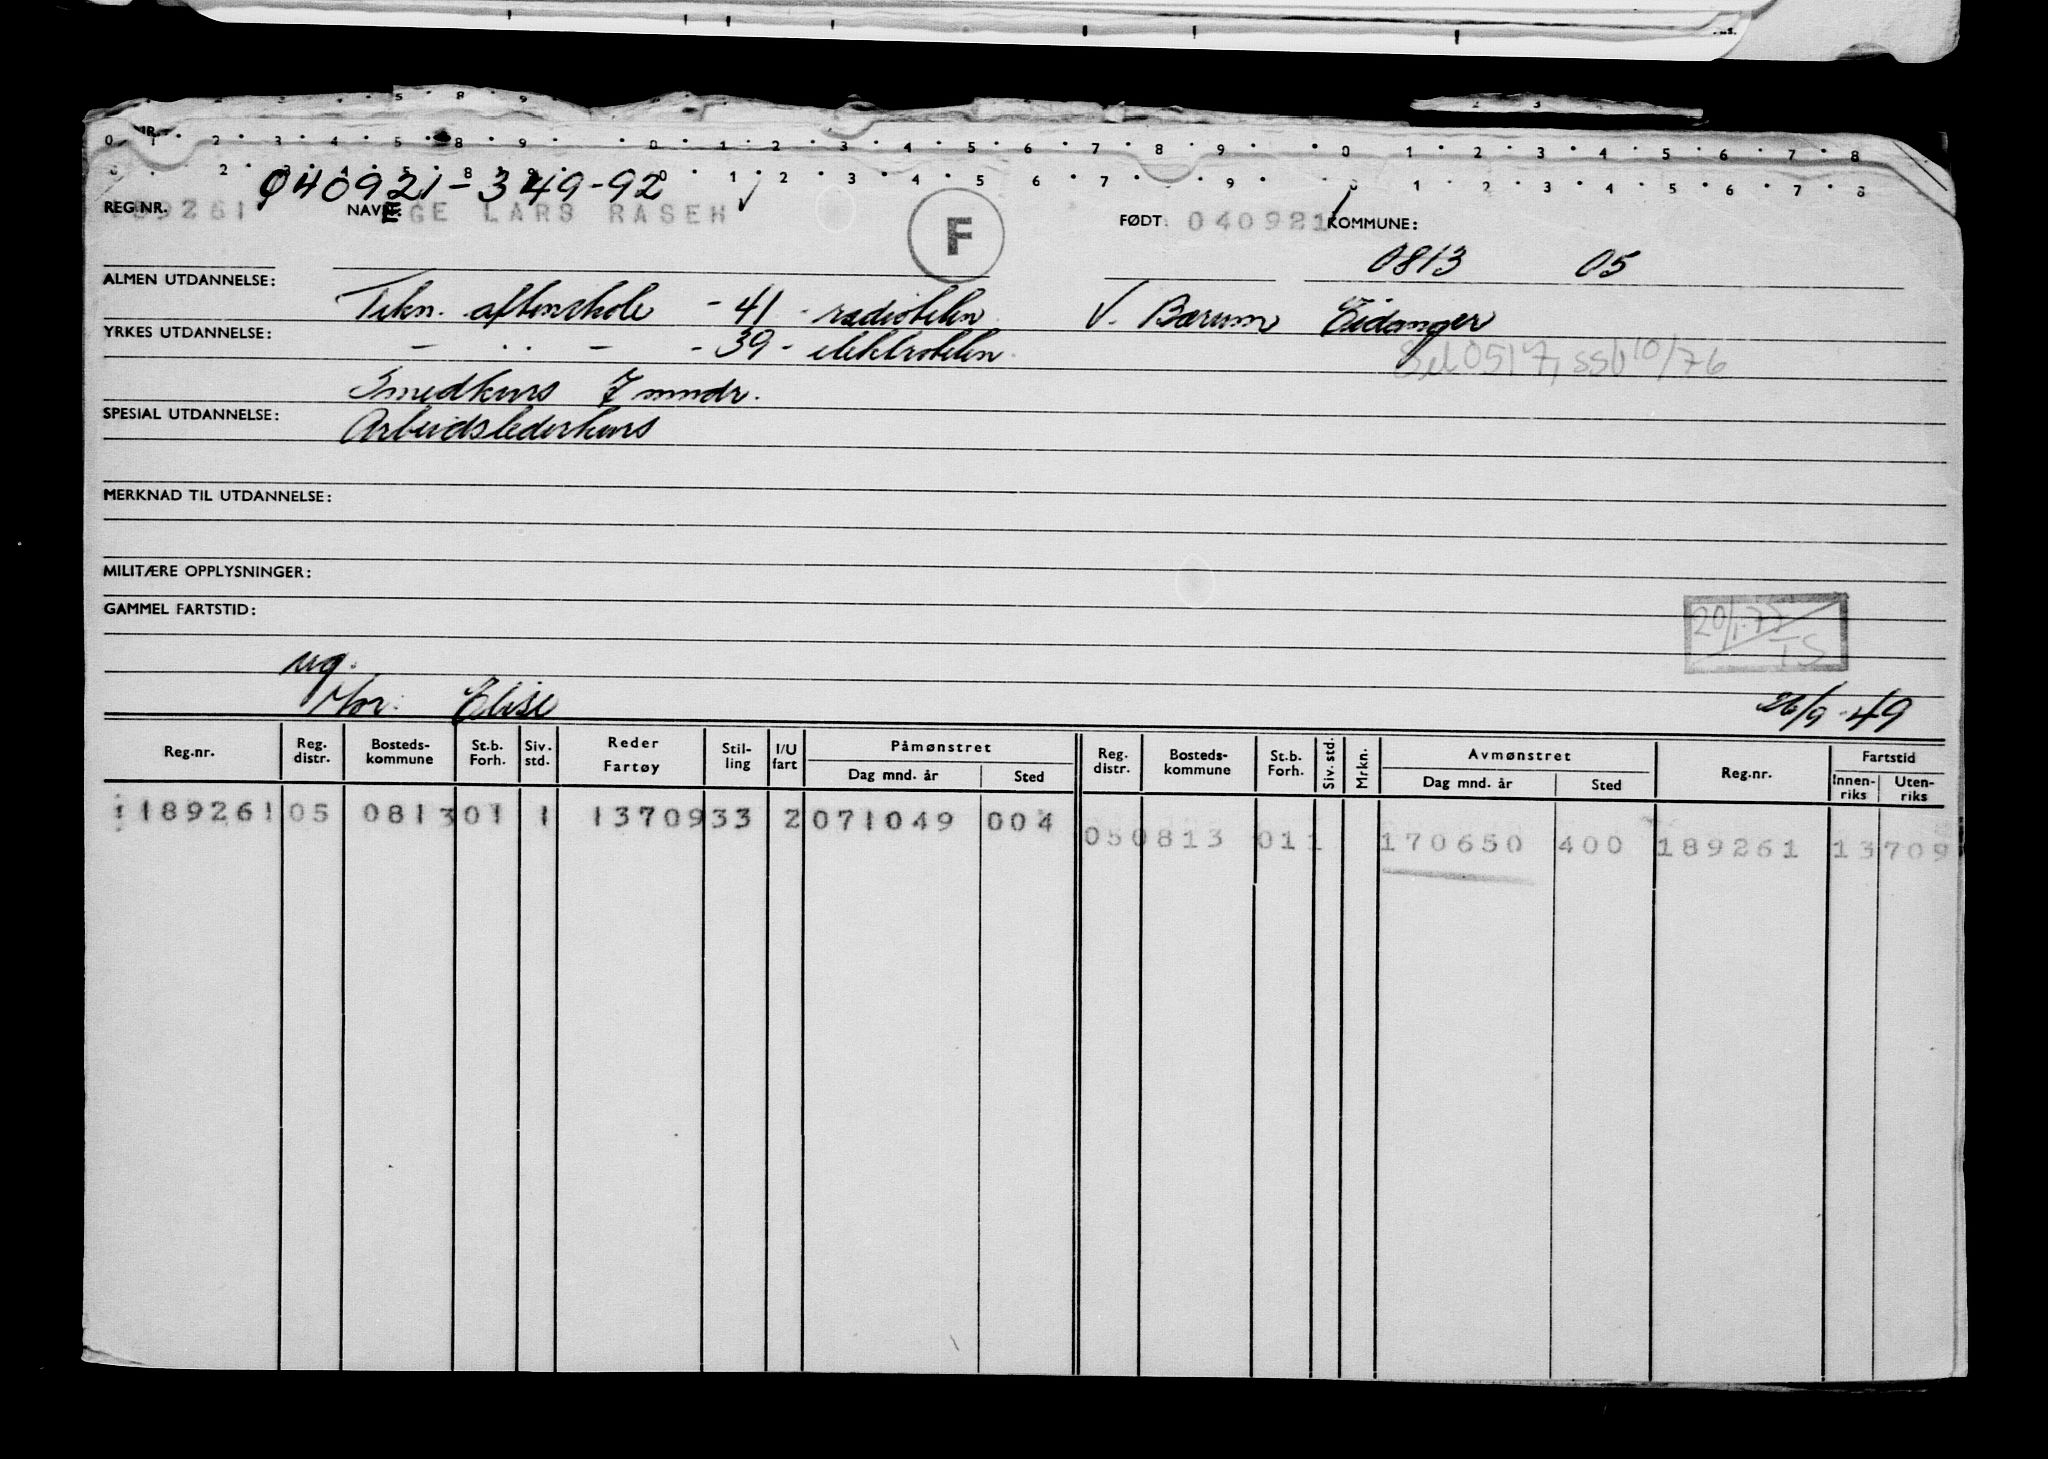 040921-349-92
REG.NR. 89261 NAVN: GE LARS RASEH F FØDT: 040921 KOMMUNE:
0813 05
ALMEN UTDANNELSE: Tekn. aftenskole - 41 - radiotekn. V. Bærum Eidanger
YRKES UTDANNELSE: - " - - 39 - elektrotekn.
Sel 0517, SSB 10/76
Smedkurs 7 mndr.
SPESIAL UTDANNELSE: Arbeidslederkurs
MERKNAD TIL UTDANNELSE:
MILITÆRE OPPLYSNINGER:
GAMMEL FARTSTID:
20/1-77 TS
ug.
Mor: Elise 26/9-49
Reg.nr. Reg. distr. Bosteds-kommune St.b. Forh. Siv. std. Reder Fartøy Stil-ling I/U fart Påmønstret Dag mnd. år Sted Reg. distr. Bosteds-kommune St.b. Forh. Siv. std. Mrkn. Avmønstret Dag mnd. år Sted Reg.nr. Fartstid Innen-riks Uten-riks
1189261 05 0813 01 1 13709 33 2 071049 004
05 0813 01 1 170650 400 189261 13709